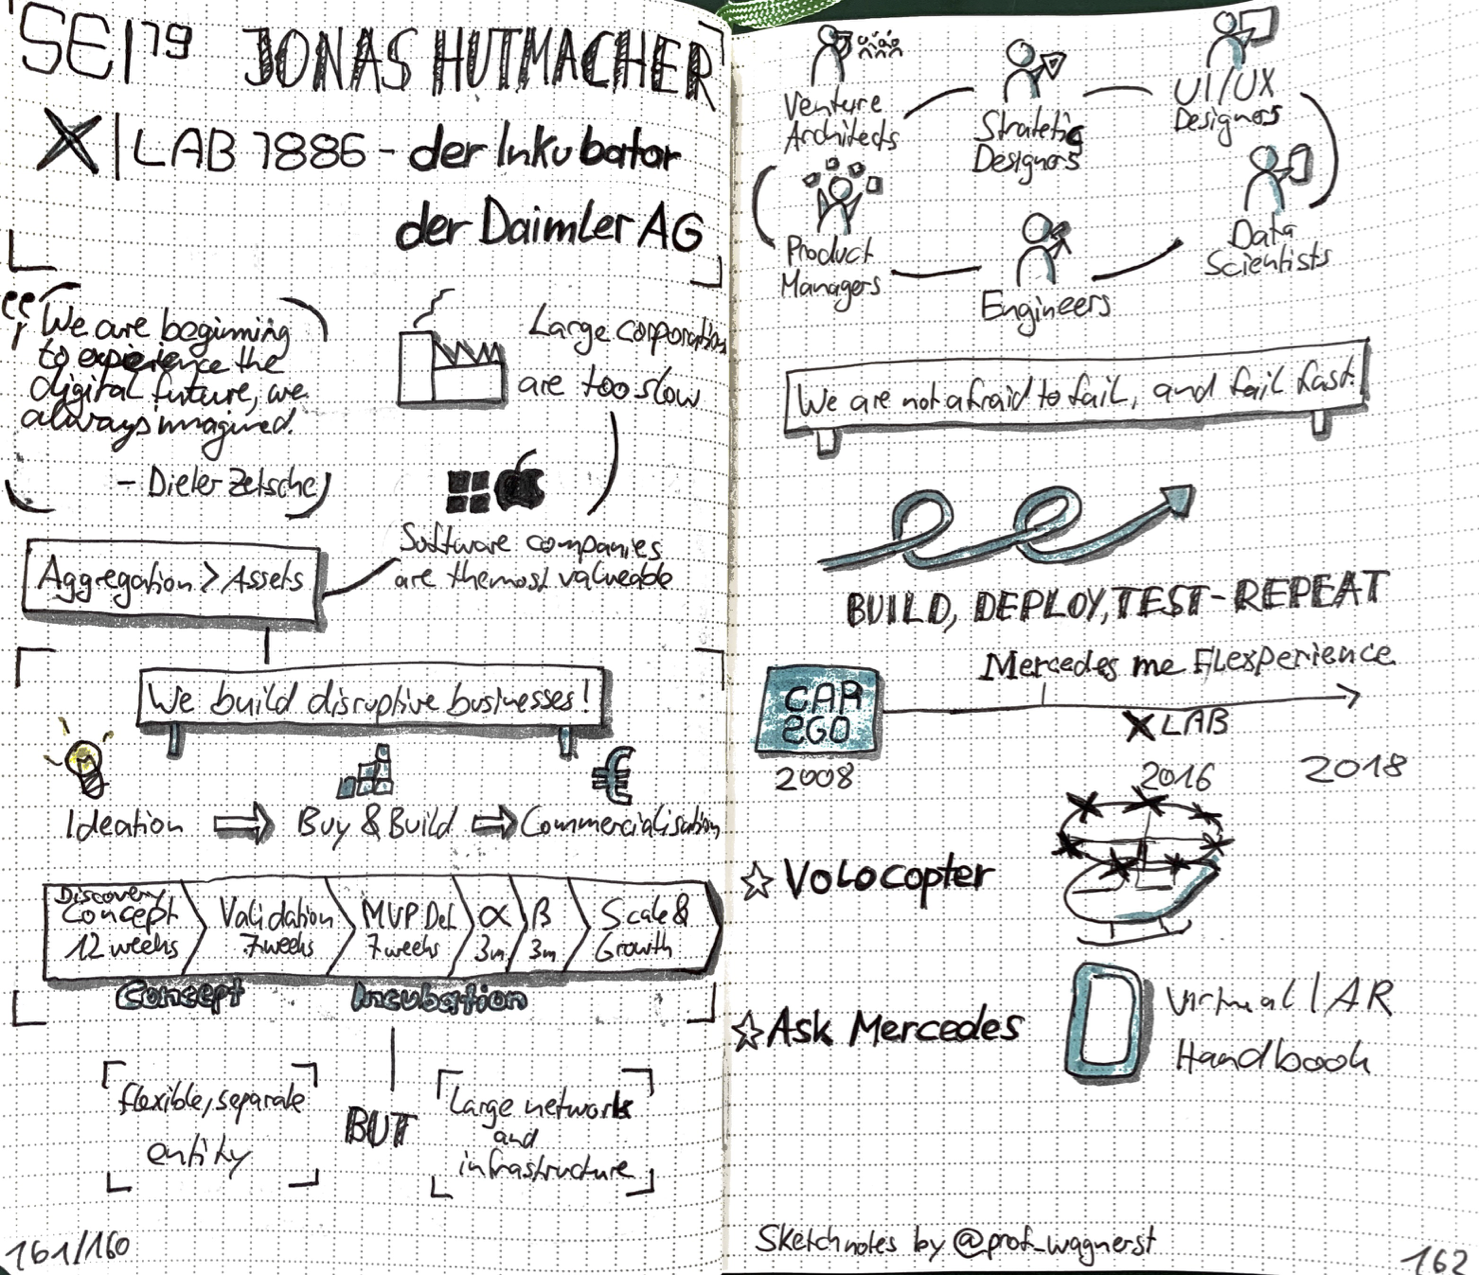 SE|19 JONAS HUTMACHER
X|LAB 1886 - der Inkubator
der Daimler AG
"We are beginning
to experience the
digital future, we
always imagined."
- Dieter Zetsche
Large corporations
are too slow
Software companies
are the most valueable
Aggregation > Assets
We build disruptive businesses!
Ideation ⇒ Buy & Build ⇒ Commercialisation
Discovery
Concept
12 weeks
Validation
7 weeks
MVP Def
7 weeks
α
3m
β
3m
Scale &
Growth
Concept
Incubation
flexible, separate
entity
BUT
Large networks
and
infrastructure
161/160
Venture
Architects
Strategic
Designers
UI/UX
Designers
Data
Scientists
Engineers
Product
Managers
We are not afraid to fail, and fail fast.
BUILD, DEPLOY, TEST - REPEAT
Mercedes me Flexperience
CAR
2GO
2008
X LAB
2016
2018
☆ Volocopter
☆ Ask Mercedes
Virtual / AR
Handbook
Sketchnotes by @prof_wagnerst
162